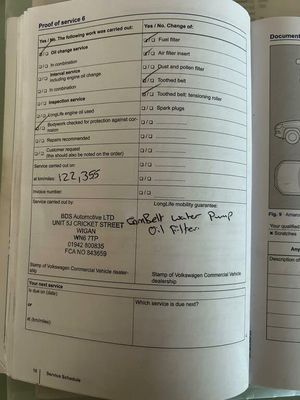 Proof of service 6
Yes / No. The following work was carried out:
Oil change service
In combination
Internal service
including engine oil change
In combination
Inspection service
LongLife engine oil used
Bodywork checked for protection against cor-
rosion
Repairs recommended
Customer request
(this should also be noted on the order)
Service carried out on:
at km/miles: 122,355
Invoice number:
Service carried out by:
BDS Automotive LTD
UNIT 5J CRICKET STREET
WIGAN
WN6 7TP
01942 800835
FCA NO 843659
Stamp of Volkswagen Commercial Vehicle dealer-
ship
Yes / No. Change of:
Fuel filter
Air filter insert
Dust and pollen filter
Toothed belt
Toothed belt: tensioning roller
Spark plugs
LongLife mobility guarantee:
CamBelt water Pump
Oil Filter
Stamp of Volkswagen Commercial Vehicle
dealership
Your next service
is due on (date)
or
at (km/miles):
Which service is due next?
16 Service Schedule
Document
Fig. 9
Your qualified
Scratches
Any
Description of